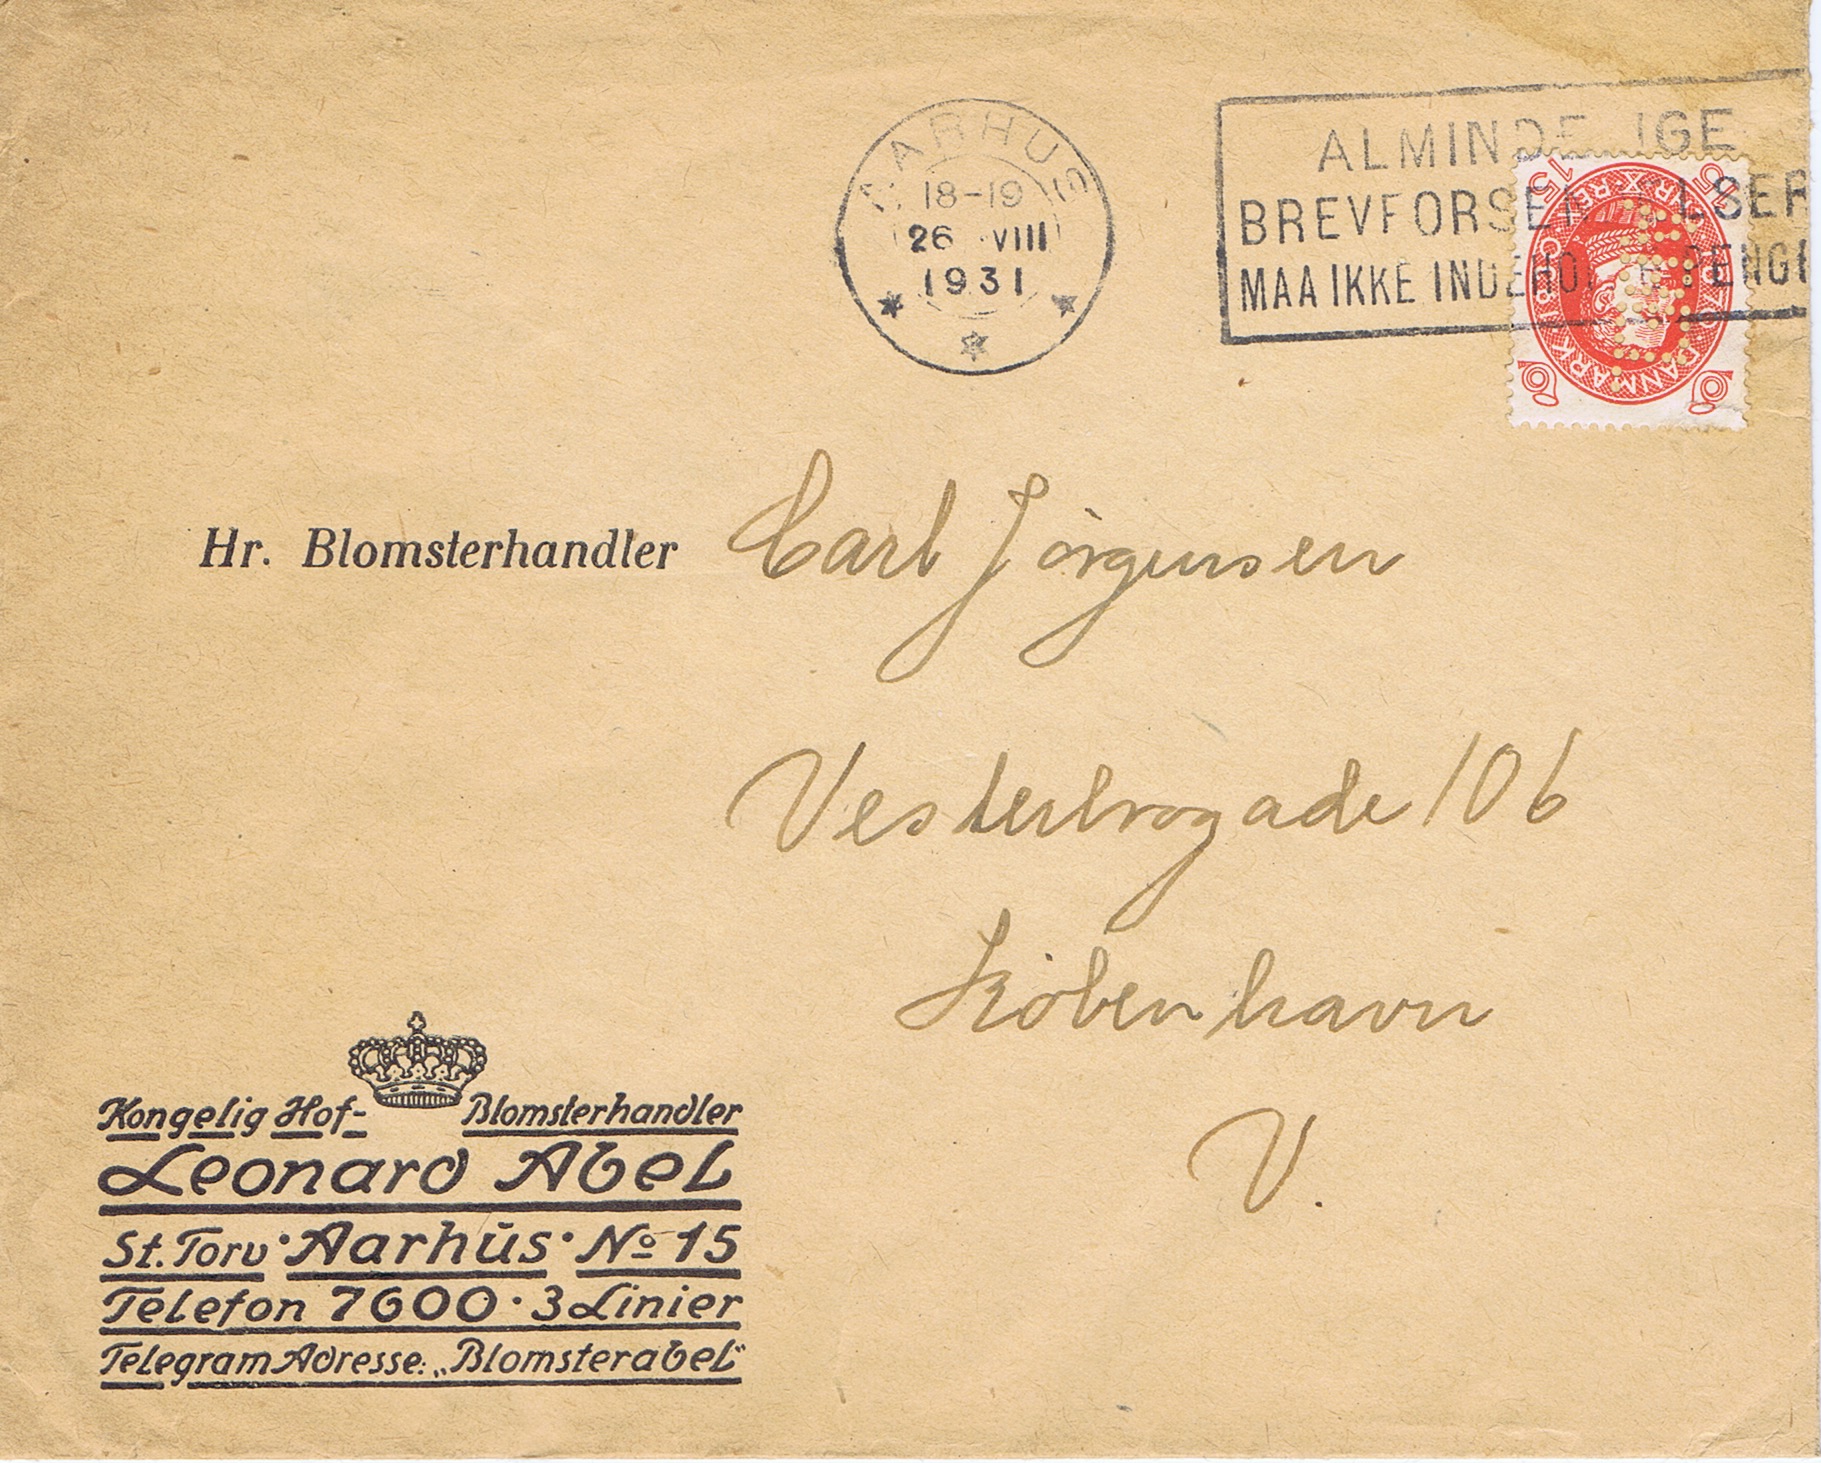 AARHUS
18-19
26 VIII
1931
ALMINDELIGE
BREVFORSENDELSER
MAA IKKE INDEHOLDE PENGE
15 15
1870 1930
DANMARK
Hr. Blomsterhandler Carl Jörgensen
Vesterbrogade 106
Köbenhavn
V.
Kongelig Hof- Blomsterhandler
Leonard Abel
St. Torv · Aarhūs · No 15
Telefon 7600 · 3 Linier
Telegram Adresse: „Blomsterabel"